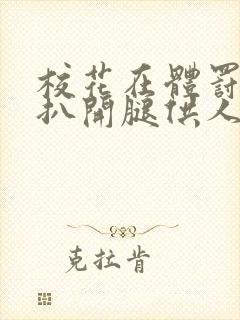 校花在體罰
扒開腿供人
克拉肯